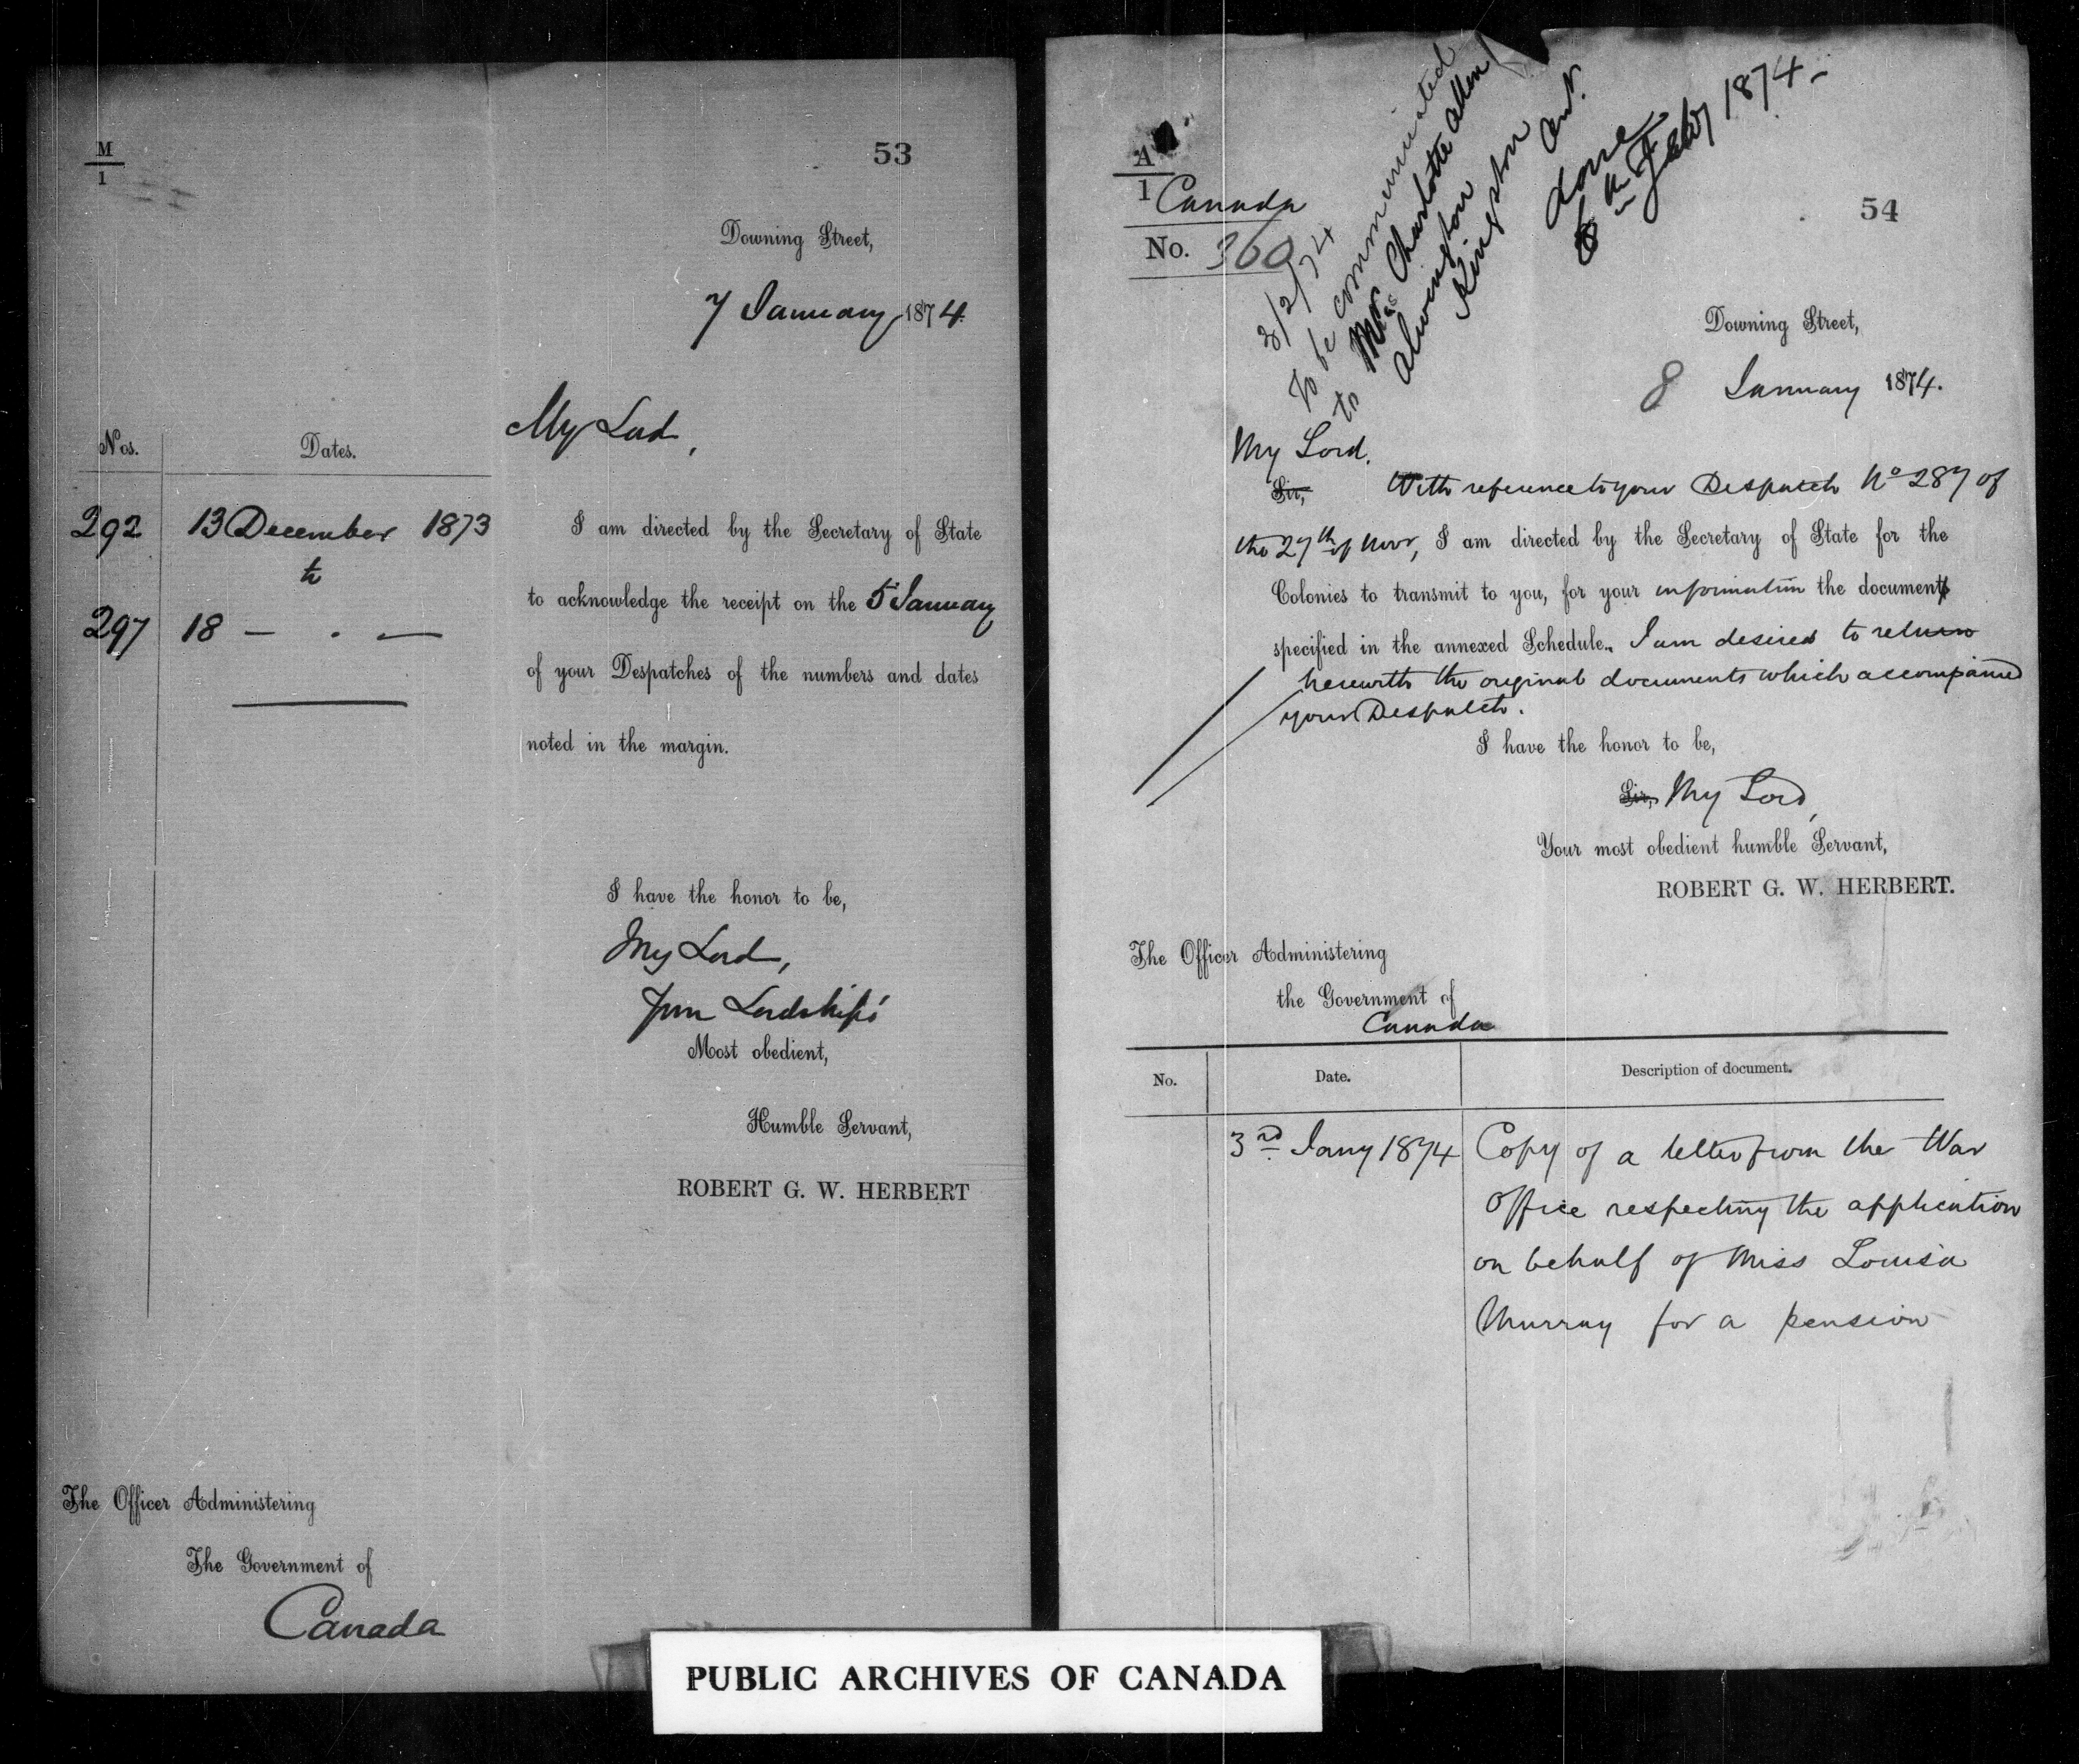 M
1
53
Downing Street,
7 January 1874.
My Lord,
Nos. Dates.
292 13 December 1873
to
297 18 — . —
I am directed by the Secretary of State
to acknowledge the receipt on the 5 January
of your Despatches of the numbers and dates
noted in the margin.
I have the honor to be,
My Lord,
Your Lordship's
Most obedient,
Humble Servant,
ROBERT G. W. HERBERT
The Officer Administering
The Government of
Canada
A
1
Canada
No. 360
3/2/74
To be communicated
to Mrs Charlotte Allen
Alwington
Kingston Ont.
done
6th Feby 1874 –
54
Downing Street,
8 January 1874.
My Lord.
Sir, With reference to your Despatch No 287 of
the 27th of Novr, I am directed by the Secretary of State for the
Colonies to transmit to you, for your information the document
specified in the annexed Schedule. I am desired to return
herewith the original documents which accompanied
your Despatch.
I have the honor to be,
Sir, My Lord,
Your most obedient humble Servant,
ROBERT G. W. HERBERT.
The Officer Administering
the Government of
Canada
No. Date. Description of document.
3rd Jany 1874 Copy of a letter from the War
Office respecting the application
on behalf of Miss Louisa
Murray for a pension
PUBLIC ARCHIVES OF CANADA